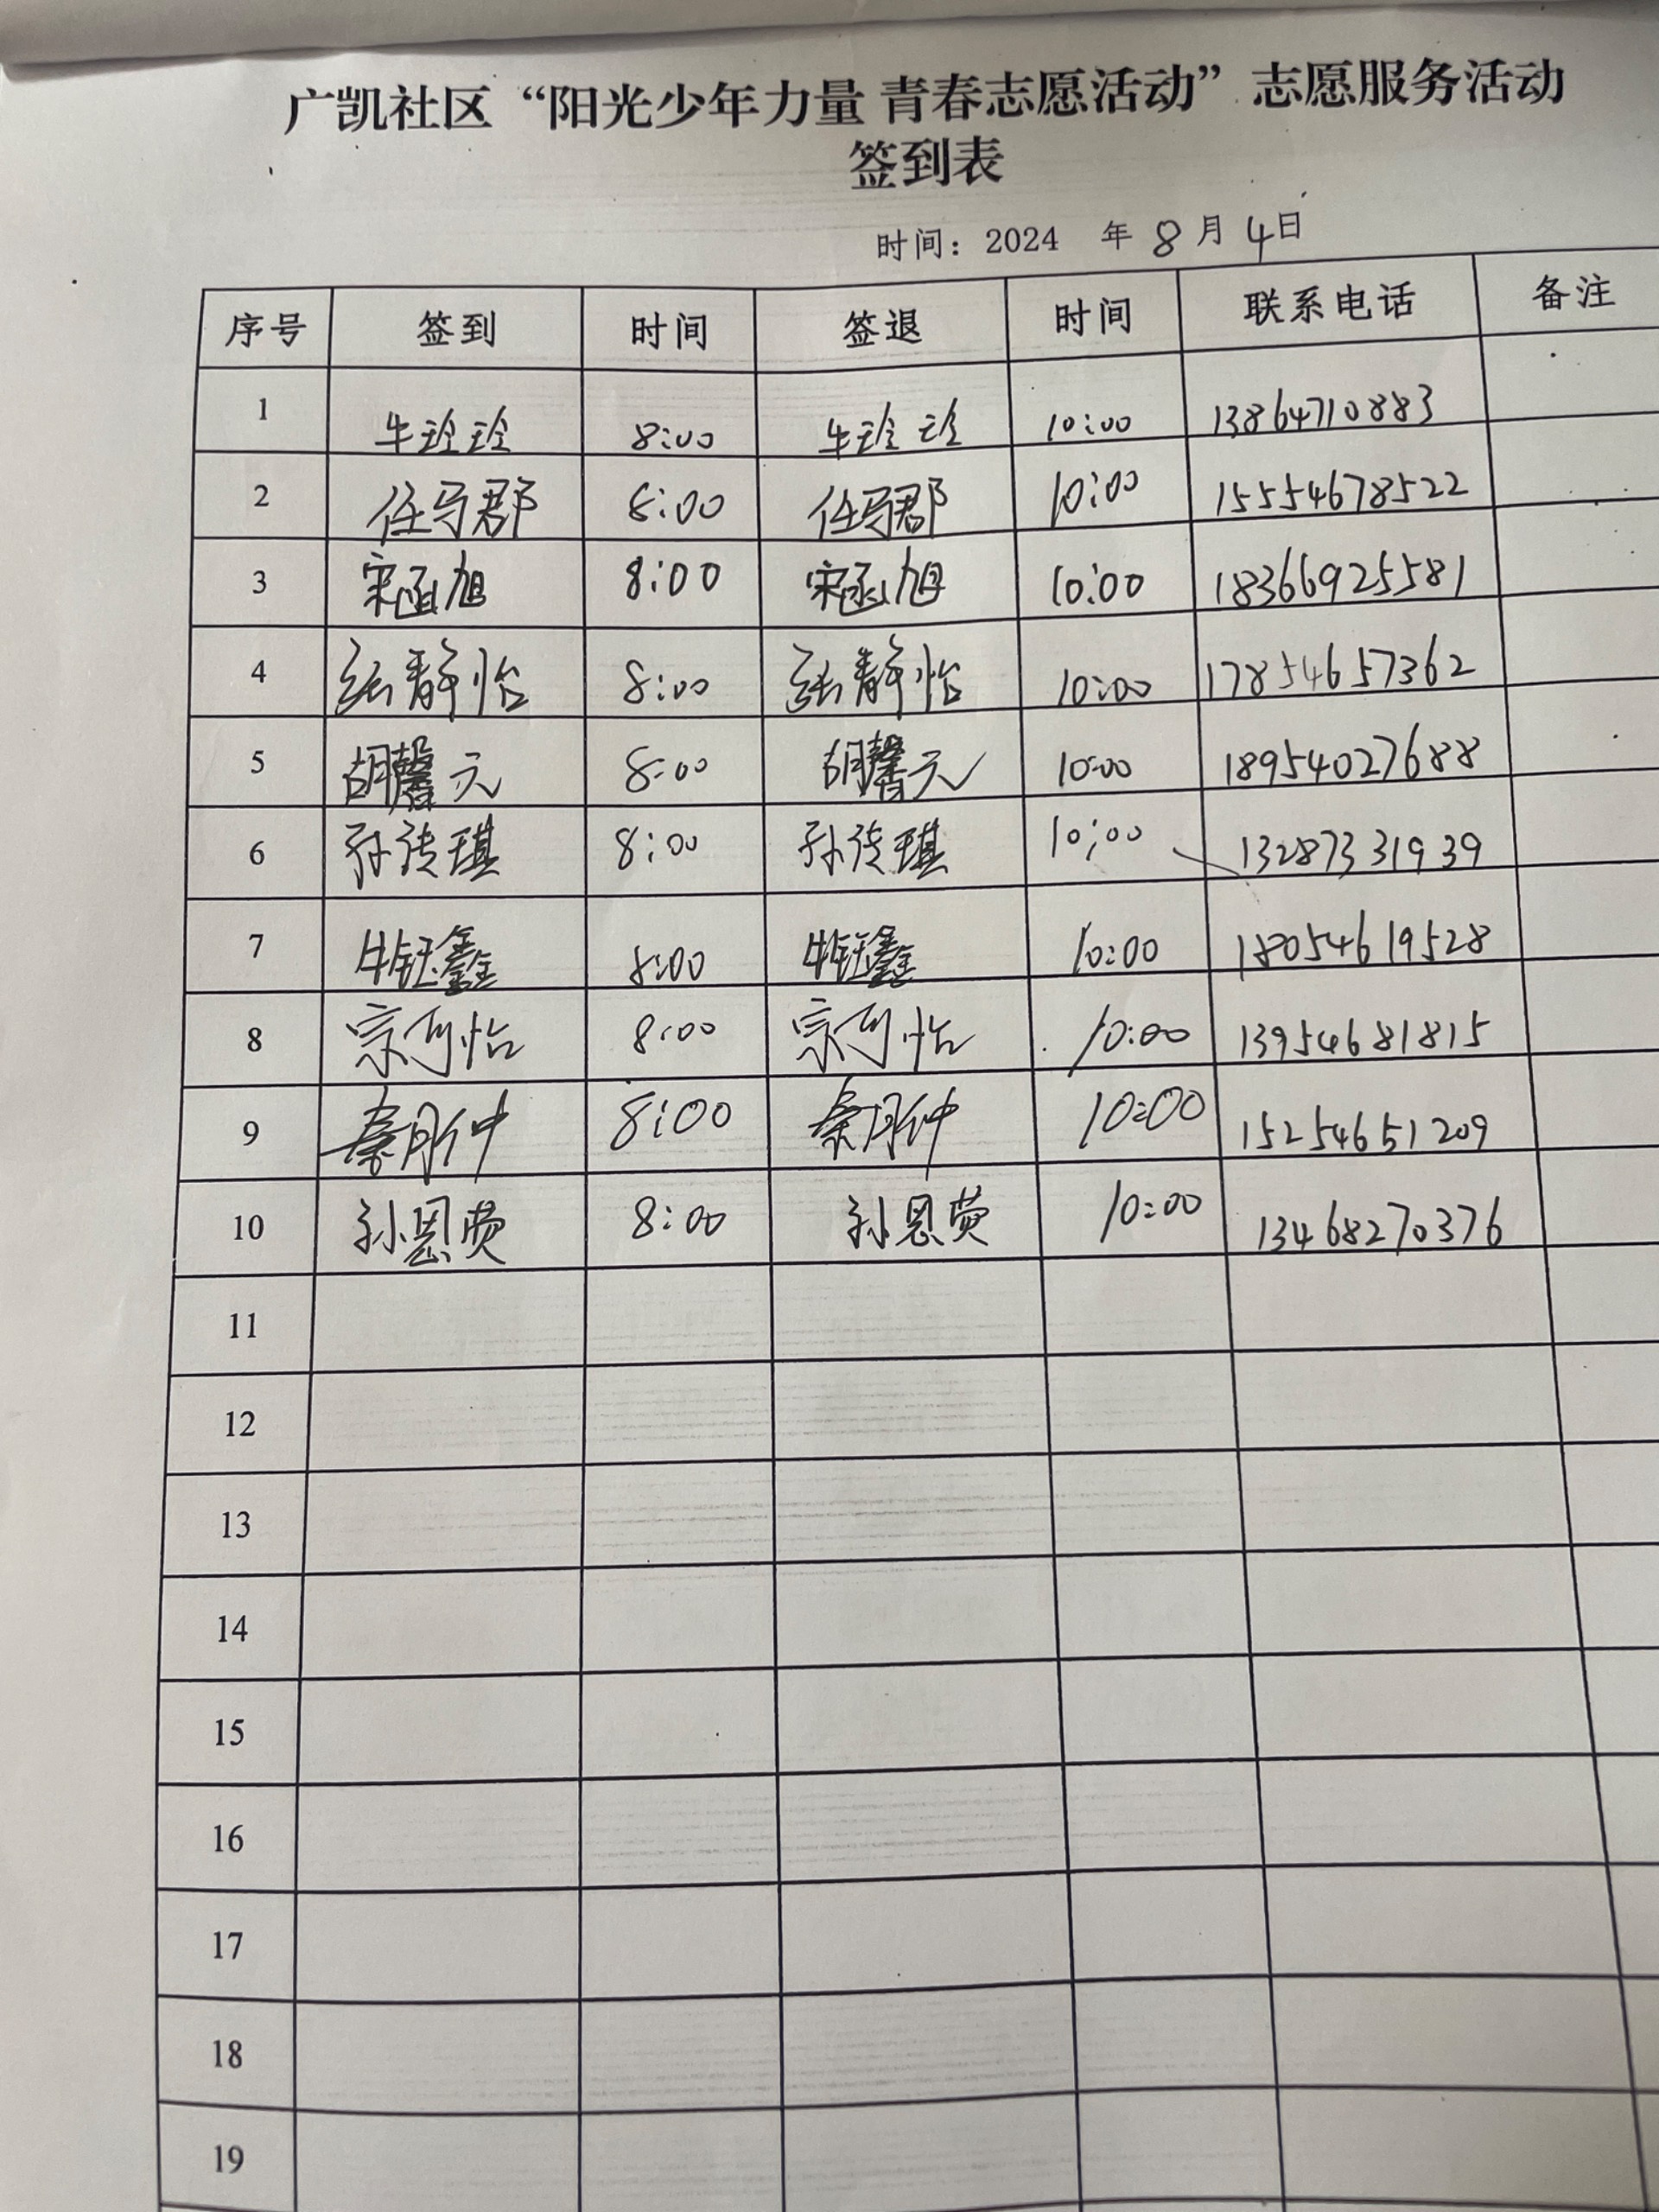 广凯社区“阳光少年力量 青春志愿活动”志愿服务活动
签到表
时间：2024 年 8 月 4日
序号 签到 时间 签退 时间 联系电话 备注
1 牛玲玲 8:00 牛玲玲 10:00 13864710883
2 任马郡 8:00 任马郡 10:00 15554678522
3 宋函旭 8:00 宋函旭 10:00 18366925581
4 张静怡 8:00 张静怡 10:00 17854657362
5 胡馨元 8:00 胡馨元 10:00 18954027688
6 孙传琪 8:00 孙传琪 10:00 13287331939
7 牛钰鑫 8:00 牛钰鑫 10:00 18054619528
8 宗可怡 8:00 宗可怡 10:00 13954681815
9 秦月仲 8:00 秦月仲 10:00 15254651209
10 孙恩 8:00 孙恩 10:00 13468270376
11
12
13
14
15
16
17
18
19